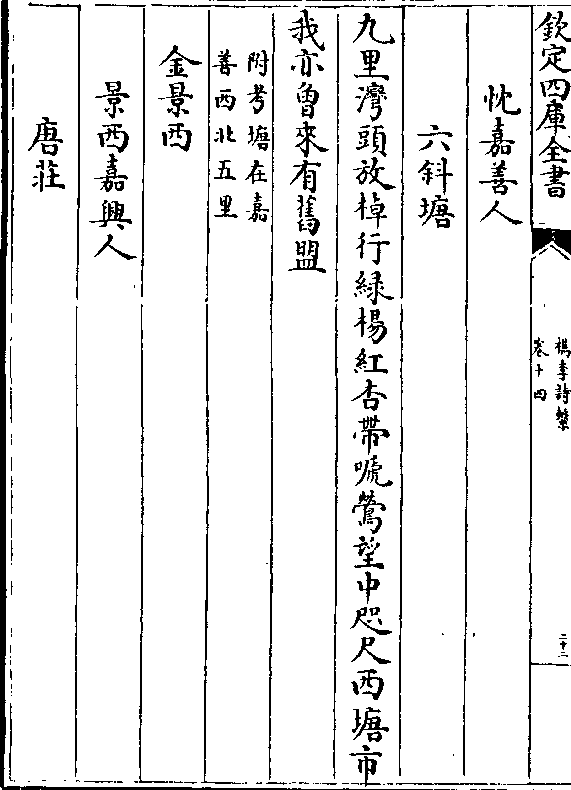 欽定四庫全書
檇李詩繫
卷十四
二十二
忱嘉善人
六斜塘
九里灣頭放棹行綠楊紅杏帶嗁鶯望中咫尺西塘市
我亦曾來有舊盟
附考塘在嘉
善西北五里
金景西
景西嘉興人
唐莊